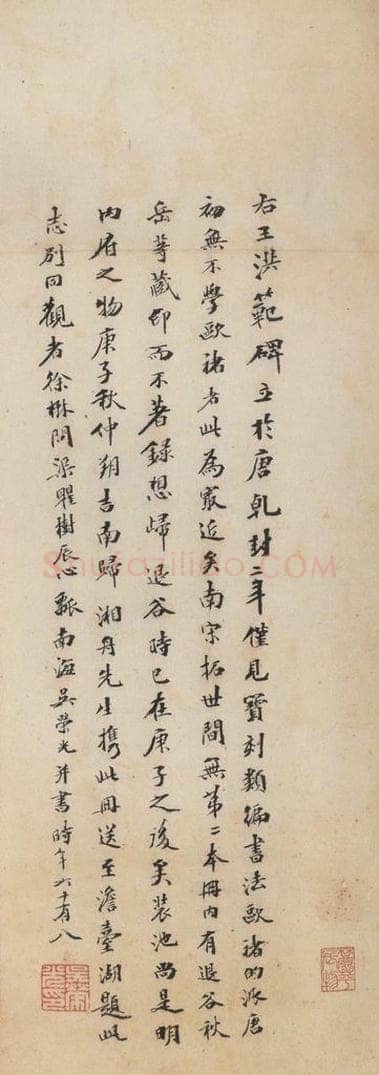 右王洪範碑立於唐乾封二年僅見寶刻類編書法歐褚的派唐
初無不學歐褚者此為最近矣南宋拓世間無第二本冊内有退谷秋
岳等藏印而不著錄想歸退谷時已在庚子之後矣裝池尚是明
内府之物庚子秋仲朔吉南歸湘舟先生携此冊送至澹臺湖題此
志別同觀者徐楙問梁瞿樹辰心瓢南海吳榮光并書時年六十有八
Shufaziliao.COM